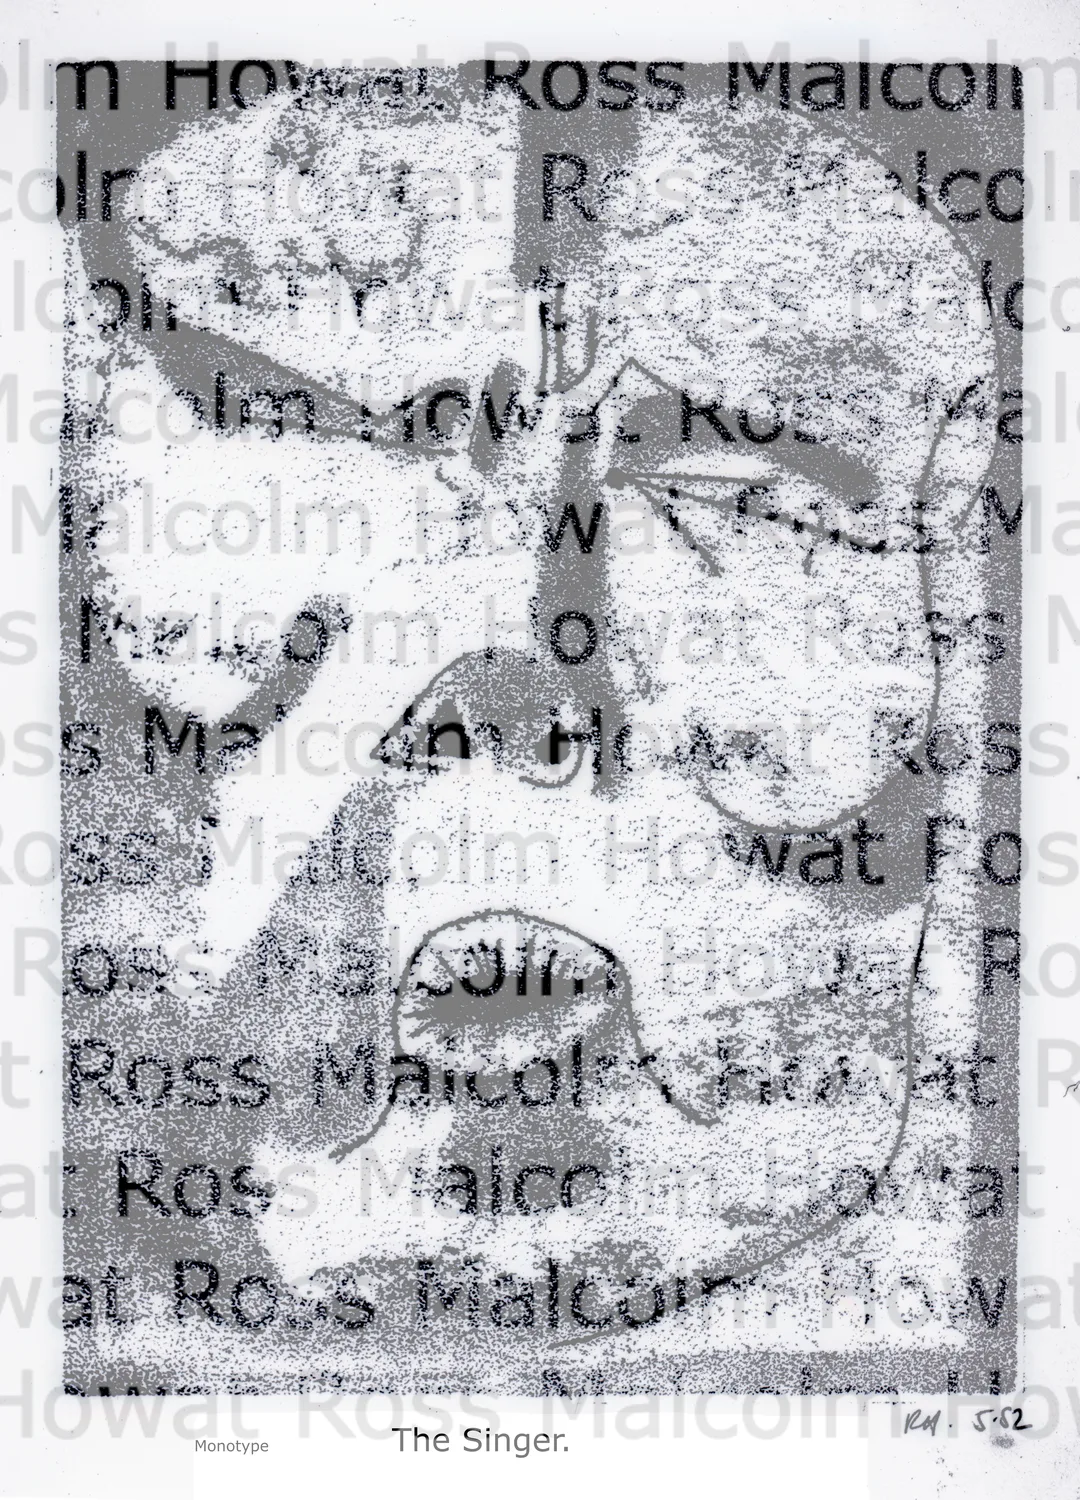 olm Howat Ross Malcolm
colm Howat Ross Malcol
lcolm Howat Ross Malco
Malcolm Howat Ross Malc
Malcolm Howat Ross Ma
s Malcolm Howat Ross M
oss Malcolm Howat Ross
Ross Malcolm Howat Ross
Ross Malcolm Howat Ro
t Ross Malcolm Howat R
at Ross Malcolm Howat
wat Ross Malcolm Howat
Howat Ross Malcolm How
RH. 5·52
Monotype The Singer.